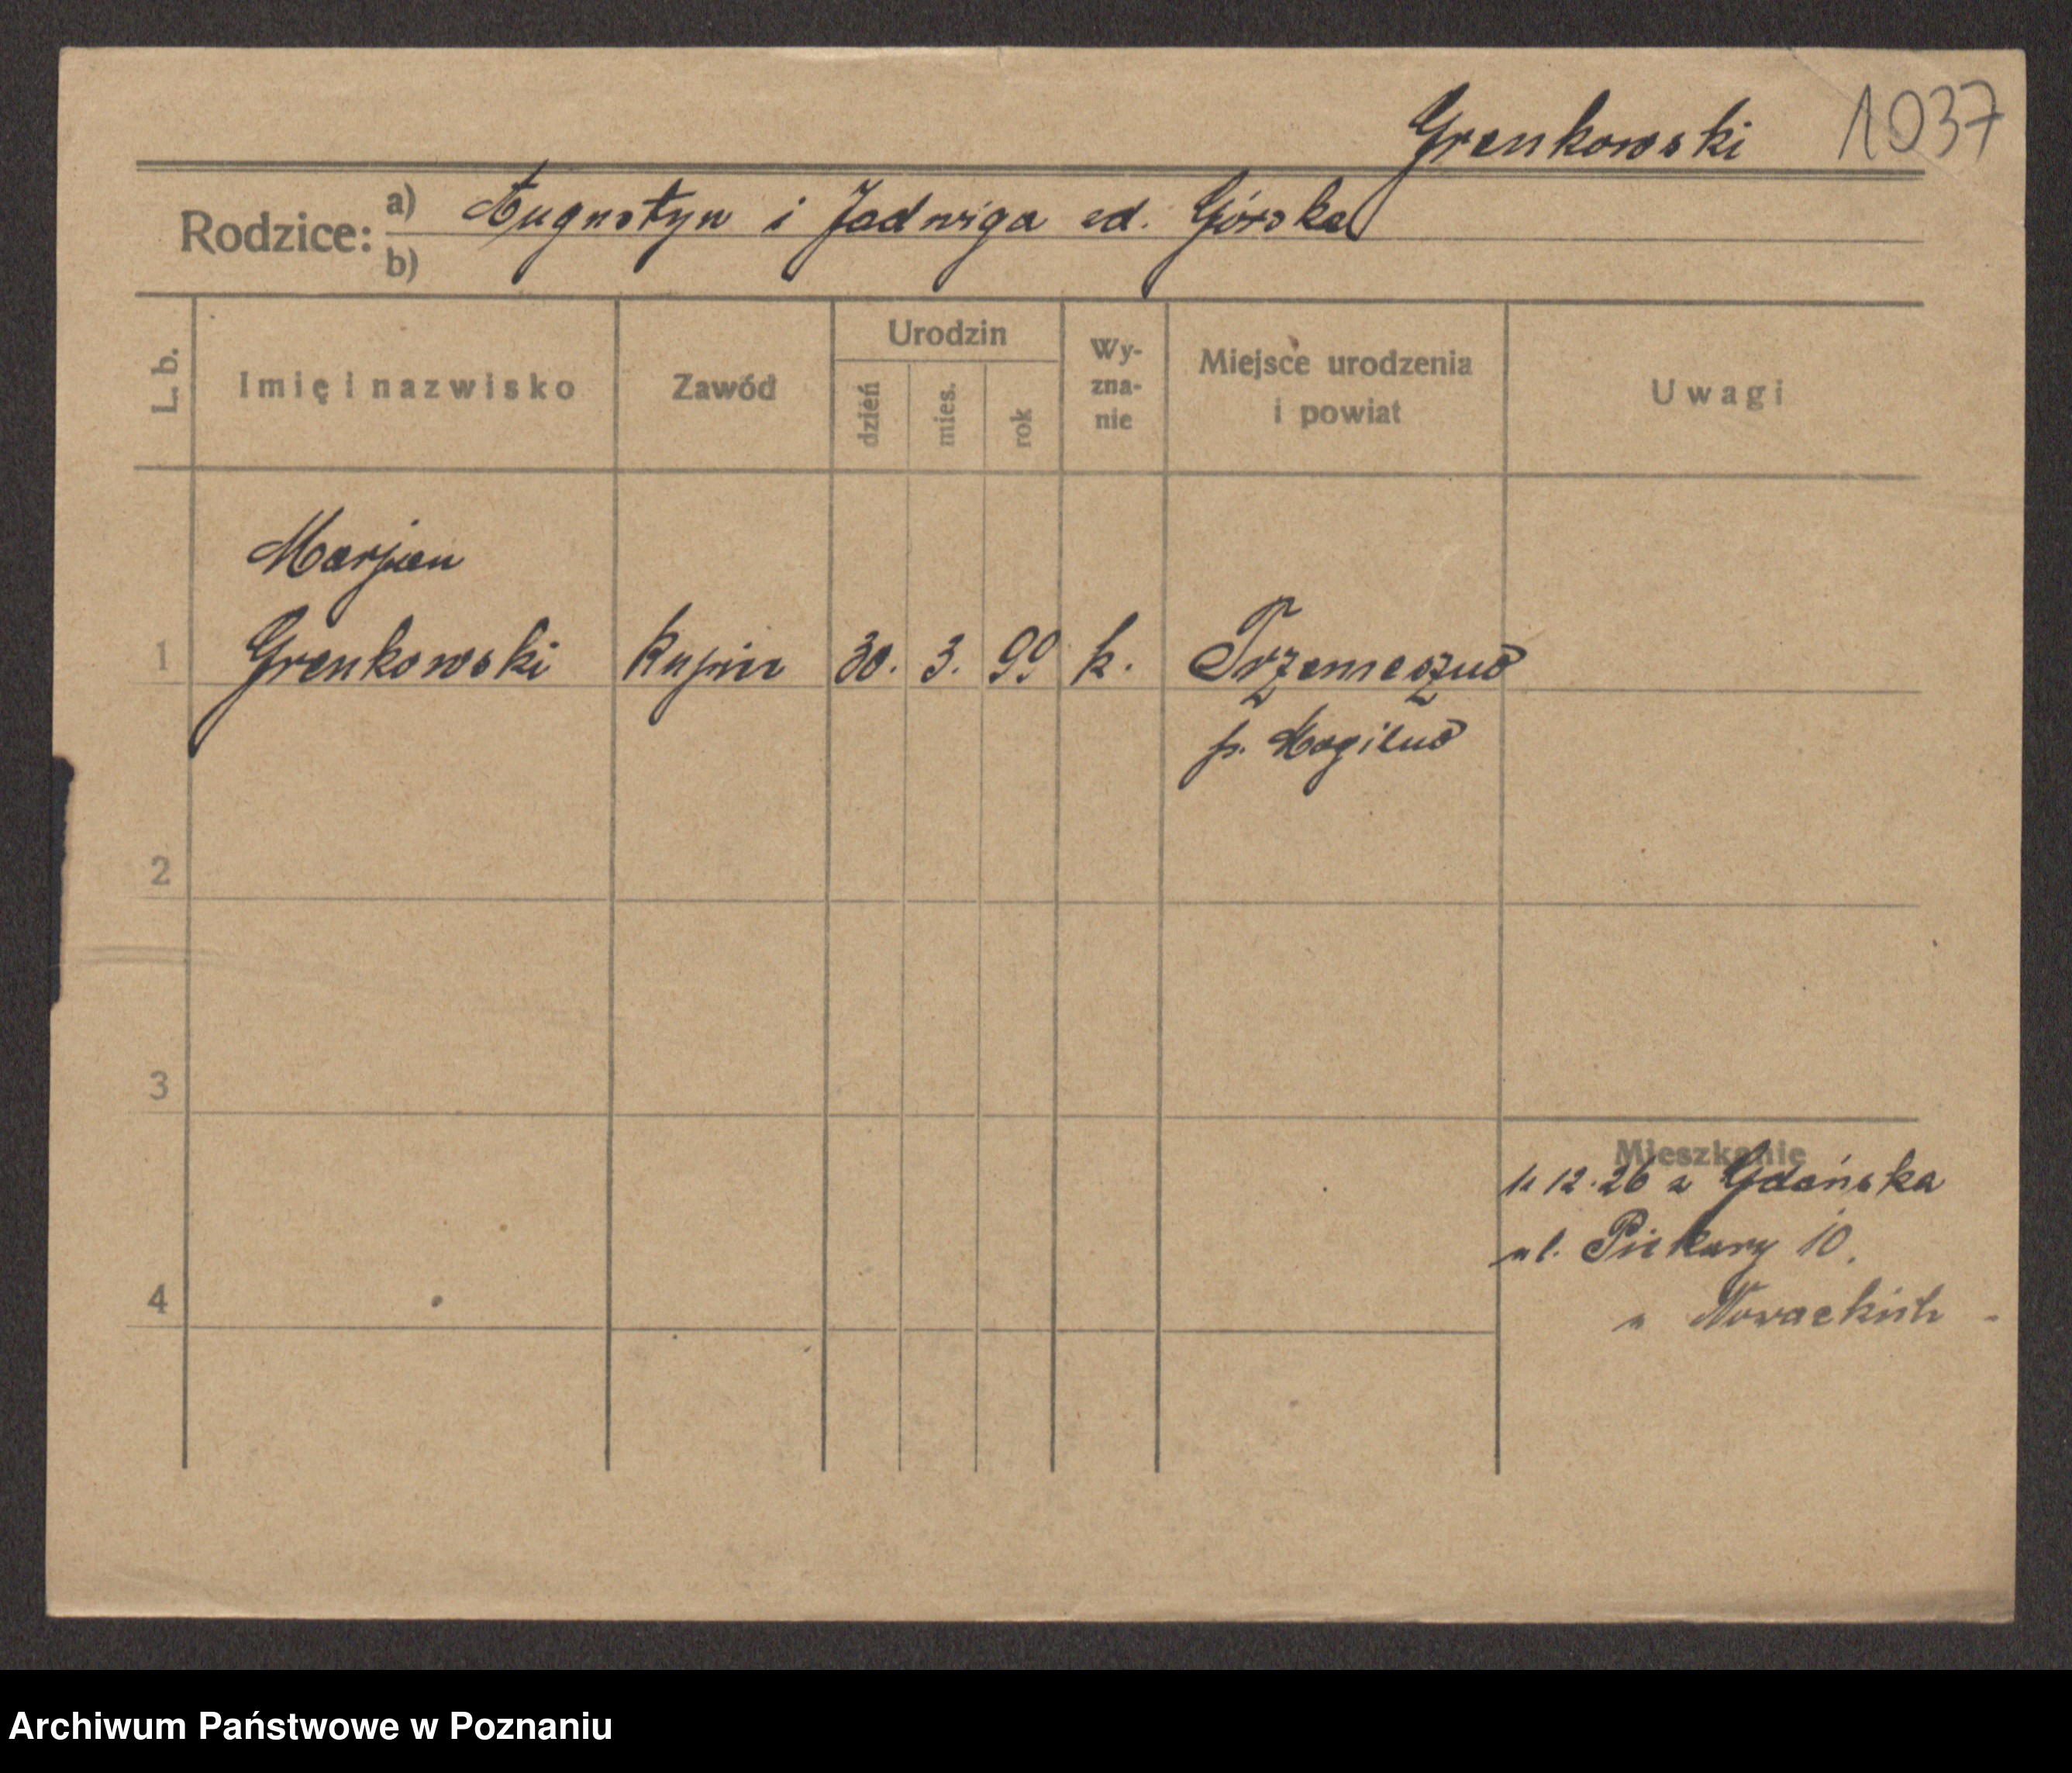 Grenkowski 1037
Rodzice: a) Augustyn i Jadwiga zd. Górska
b)
L. b. Imię i nazwisko Zawód Urodzin dzień mies. rok Wy-zna-nie Miejsce urodzenia i powiat Uwagi
Marjan
1 Grenkowski kupiec 30. 3. 99 k. Trzemeszno
p. Mogilno
2
3
Mieszkanie
12.26 z Gdańska
ul. Piekary 10.
4
u Nowackich -
Archiwum Państwowe w Poznaniu